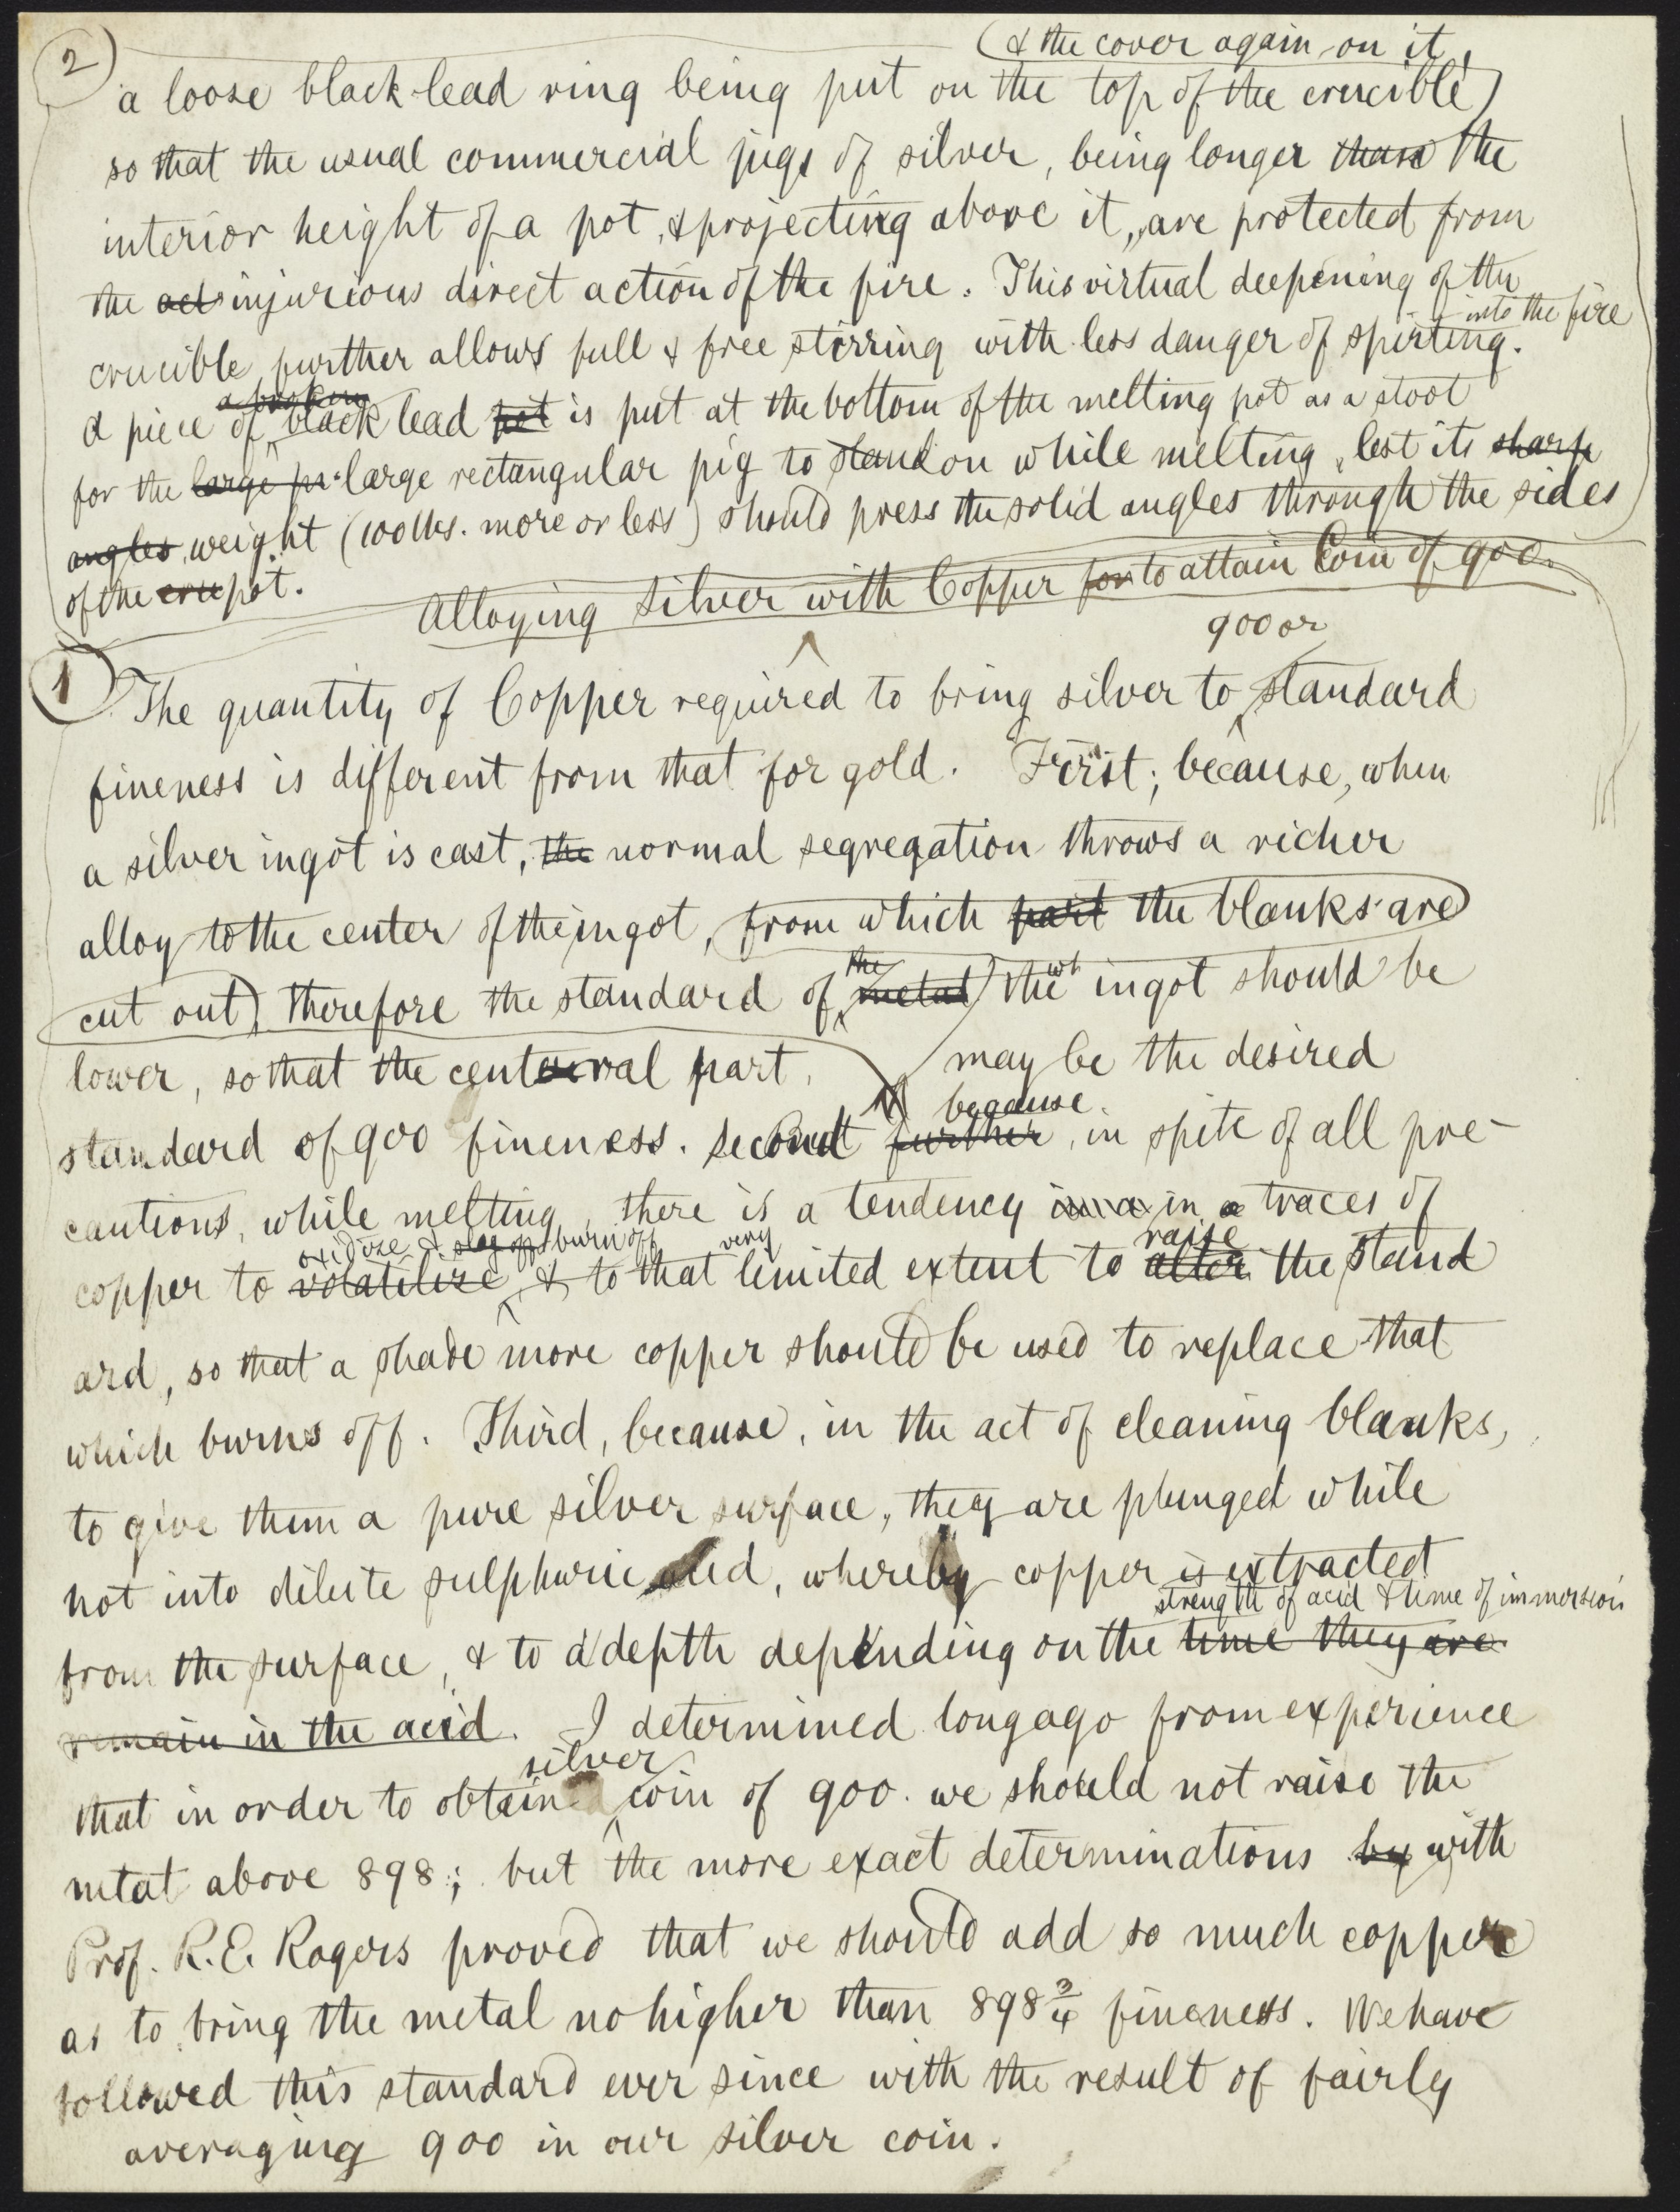 2
(& the cover again on it,
a loose black-lead ring being put on the top of the crucible)
so that the usual commercial pigs of silver, being longer than the
interior height of a pot, & projecting above it, are protected from
the act injurious direct action of the fire. This virtual deepening of the
into the fire
crucible further allows full & free stirring with less danger of spirting.
a broken
A piece of black lead pot is put at the bottom of the melting pot as a stool
for the large pi large rectangular pig to stand on while melting, lest its sharp
angles weight (100 lbs. more or less) should press the solid angles through the sides
of the cru pot.
Alloying Silver with Copper for to attain Coin of 900.
900 or
1
The quantity of Copper required to bring silver to standard
fineness is different from that for gold. First; because, when
a silver ingot is cast, the normal segregation throws a richer
alloy to the center of the ingot, (from which part the blanks are
the wh
cut out) therefore the standard of metal the ingot should be
lower, so that the centeral part, may be the desired
because
standard of 900 fineness. Second further, in spite of all pre-
cautions, while melting, there is a tendency in a in a traces of
oxidize & slag off burn off very raise
copper to volatilize, & to that limited extent to alter the stand
ard, so that a shade more copper should be used to replace that
which burns off. Third, because, in the act of cleaning blanks,
to give them a pure silver surface, they are plunged while
hot into dilute sulphuric acid, whereby copper is extracted
strength of acid & time of immersion
from the surface, & to a depth depending on the time they are
remain in the acid. I determined long ago from experience
silver
that in order to obtain coin of 900. we should not raise the
metal above 898; but the more exact determinations by with
Prof. R. E. Rogers proved that we should add so much copper
as to bring the metal no higher than 898 3/4 fineness. We have
followed this standard ever since with the result of fairly
averaging 900 in our silver coin.